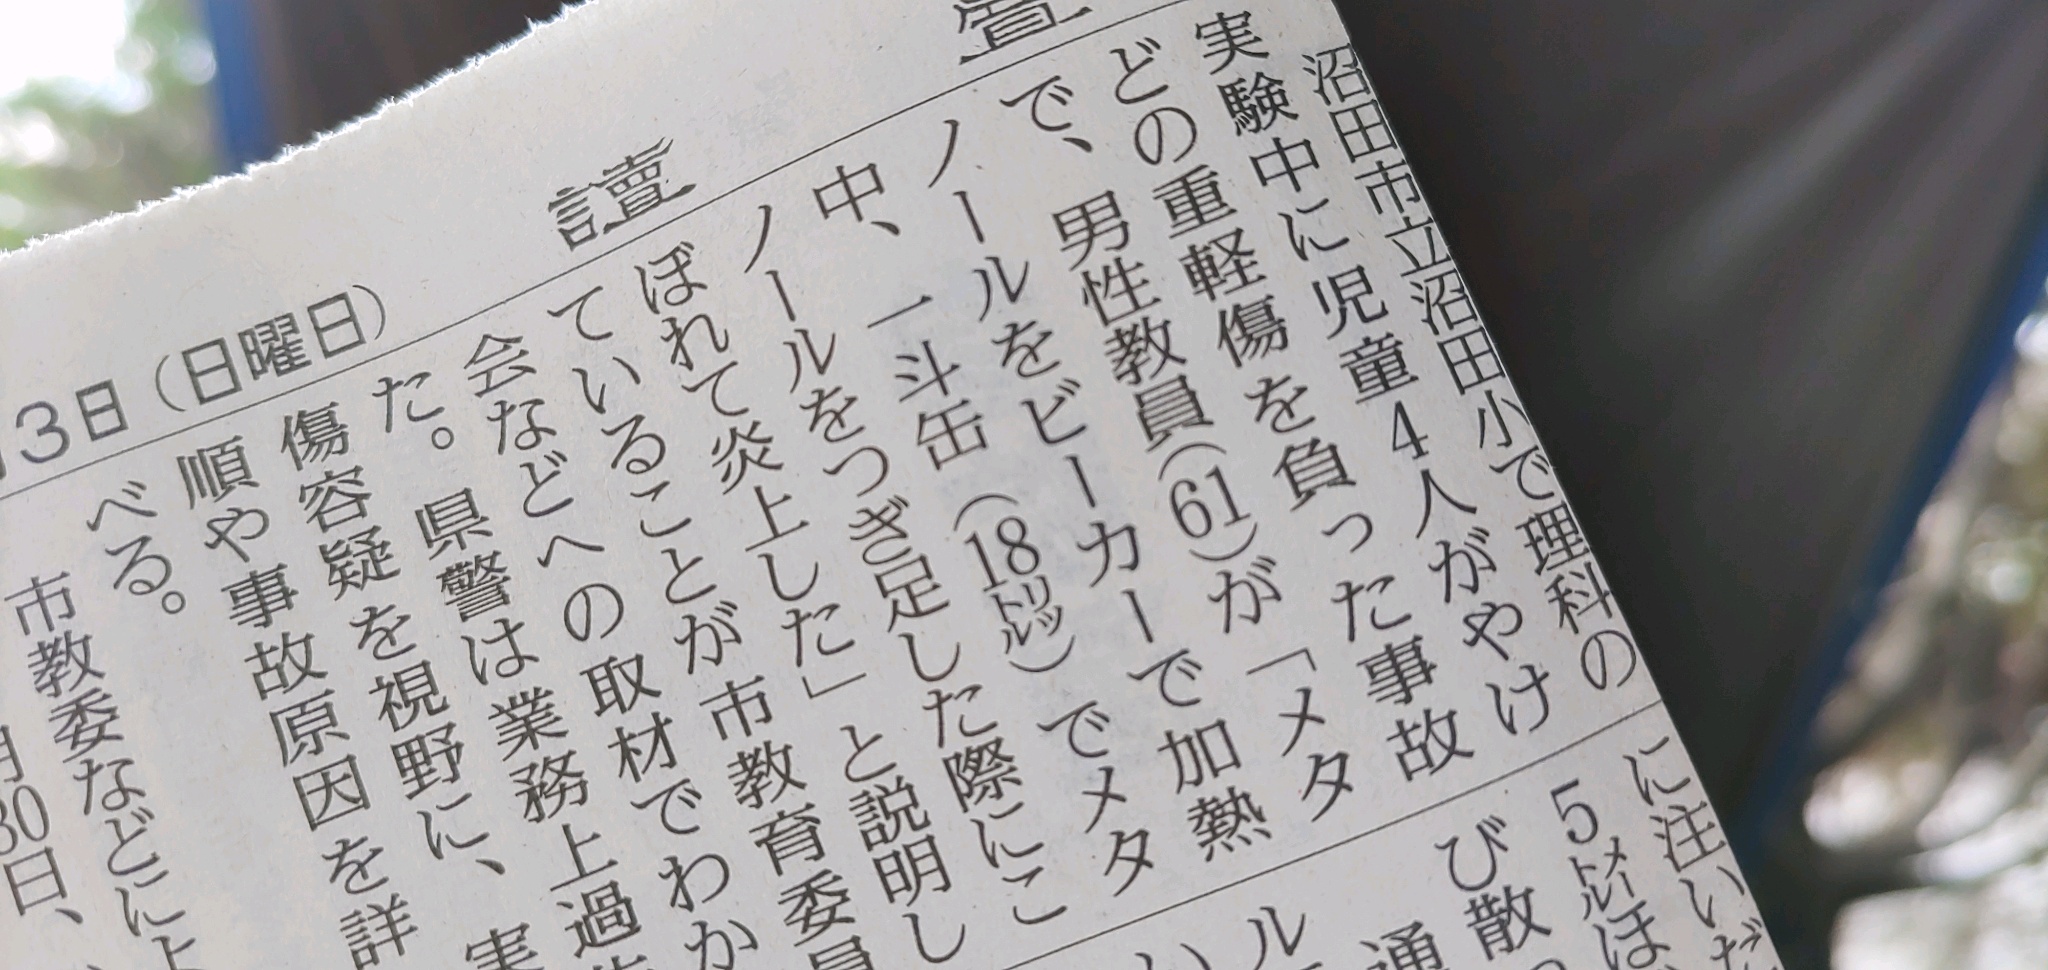 讀
3日(日曜日)
沼田市立沼田小で理科の
実験中に児童4人がやけ
どの重軽傷を負った事故
で、男性教員(61)が「メタ
ノールをビーカーで加熱
中、一斗缶(18リットル)でメタ
ノールをつぎ足した際にこ
ぼれて炎上した」と説明し
ていることが市教育委員
会などへの取材でわか
た。県警は業務上過
傷容疑を視野に、実
順や事故原因を詳
べる。
市教委などによ
30日、
に注いだ
5メートルほ
び散
通
ル